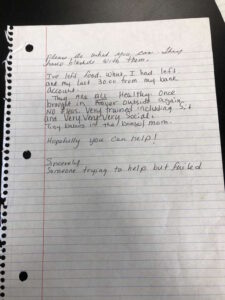 Please do what you can. They
have blends with them.
I've left food, what I had left
and my last 30.00 from my bank
account.
They are all Healthy. Once
brought in never outside again.
No fleas. Very trained including sit
and Very Very Very Social.
Tiny bumps is the mom.
Hopefully you can help!
Sincerely
Someone trying to help but failed